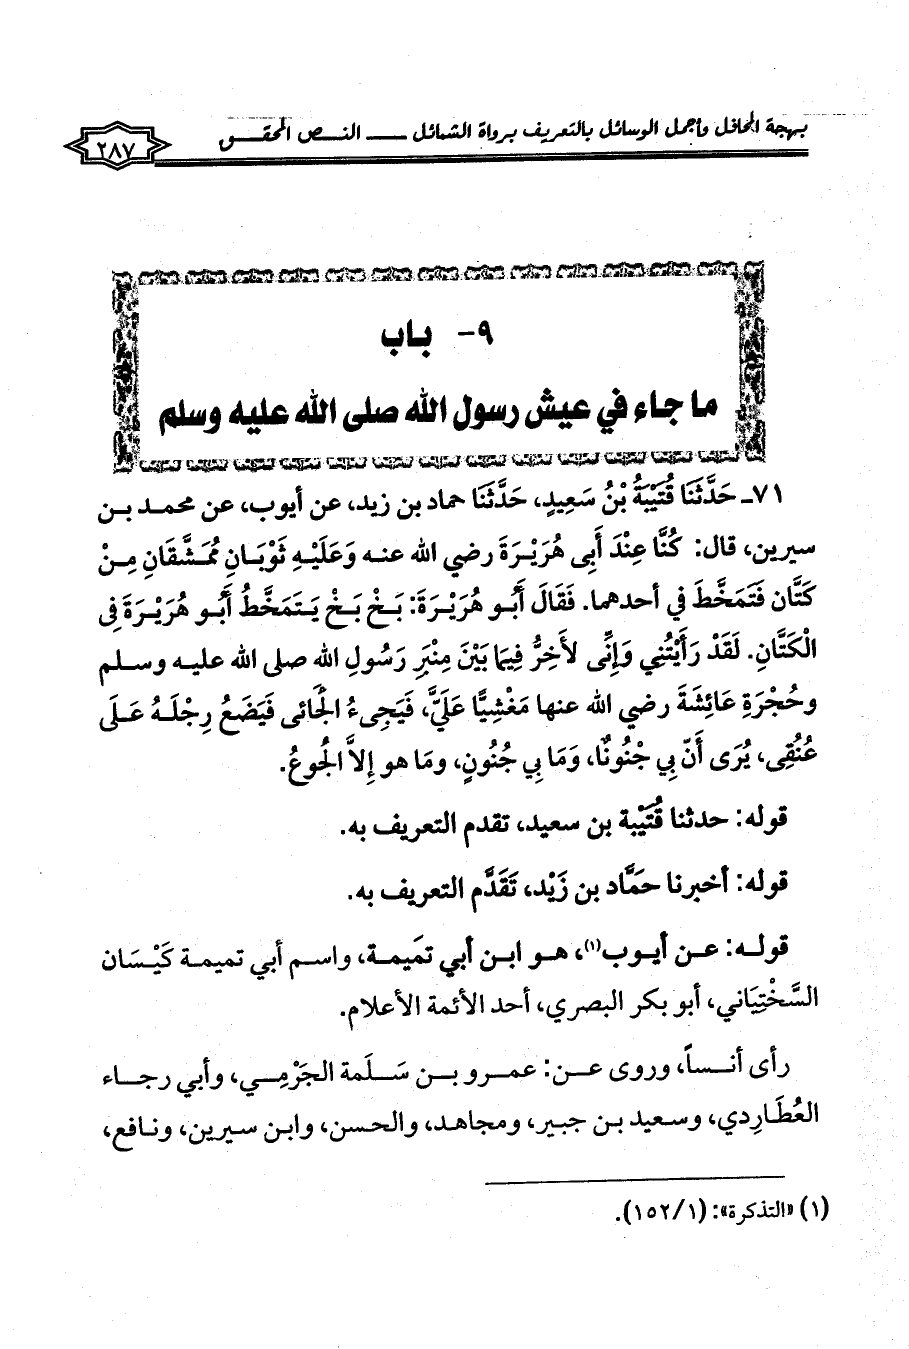 بهجة المحافل وأجمل الوسائل بالتعريف برواة الشمائل ــــ النـص المحقـق
٢٨٧
٩- باب
ما جاء في عيش رسول الله صلى الله عليه وسلم
٧١ـ حَدَّثَنَا قُتَيْبَةُ بْنُ سَعِيدٍ، حَدَّثَنَا حماد بن زيد، عن أيوب، عن محمد بن
سيرين، قال: كُنَّا عِنْدَ أَبِى هُرَيْرَةَ رضي الله عنه وَعَلَيْهِ ثَوْبَانِ مُمَشَّقَانِ مِنْ
كَتَّان فَتَمَخَّطَ في أحدهما. فَقَالَ أَبُو هُرَيْرَةَ: بَخْ بَخْ يَتَمَخَّطُ أَبُو هُرَيْرَةَ فِى
الْكَتَّانِ. لَقَدْ رَأَيْتُنِي وَإِنِّى لأَخِرُّ فِيمَا بَيْنَ مِنْبَرِ رَسُولِ الله صلى الله عليه وسلم
وحُجْرَةِ عَائِشَةَ رضي الله عنها مَغْشِيًّا عَلَيَّ، فَيَجِىءُ الْجَائى فَيَضَعُ رِجْلَهُ عَلَى
عُنُقِى، يُرَى أَنّ بِي جْنُونًا، وَمَا بِي جُنُونٍ، ومَا هو إِلاَّ الجُوعُ.
قوله: حدثنا قُتَيْبة بن سعيد، تقدم التعريف به.
قوله: أخبرنا حمَّاد بن زَيْد، تَقَدَّم التعريف به.
قوله: عن أيوب(١)، هو ابن أبي تمَيمة، واسم أبي تميمة كَيْسَان
السَّخْتِيَاني، أبو بكر البصري، أحد الأئمة الأعلام.
رأى أنساً، وروى عن: عمرو بن سَلَمة الجَرْمِي، وأبي رجاء
العُطَارِدي، وسعيد بن جبير، ومجاهد، والحسن، وابن سيرين، ونافع،
(١) «التذكرة»: (١/١٥٢).